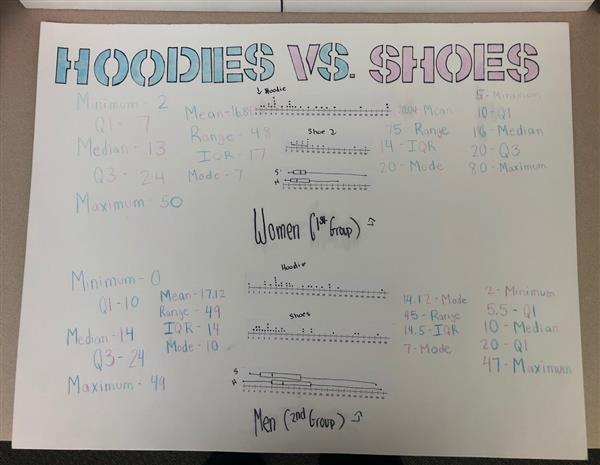 HOODIES VS. SHOES
Minimum - 2
Q1 - 7
Median - 13
Q3 - 24
Maximum - 50
Range - 48
IQR - 17
Mode - 7
Hoodie
Shoe 2
S
H
Mean
75 - Range
14 - IQR
20 - Mode
5 - Minimum
10 - Q1
16 - Median
20 - Q3
80 - Maximum
Women (1st Group)
Minimum - 0
Q1 - 10
Median - 14
Q3 - 24
Maximum - 49
Mean - 17.12
Range - 49
IQR - 14
Mode - 10
Hoodie
Shoes
S
H
14.12 - Mode
45 - Range
14.5 - IQR
7 - Mode
2 - Minimum
5.5 - Q1
10 - Median
20 - Q1
47 - Maximum
Men (2nd Group)